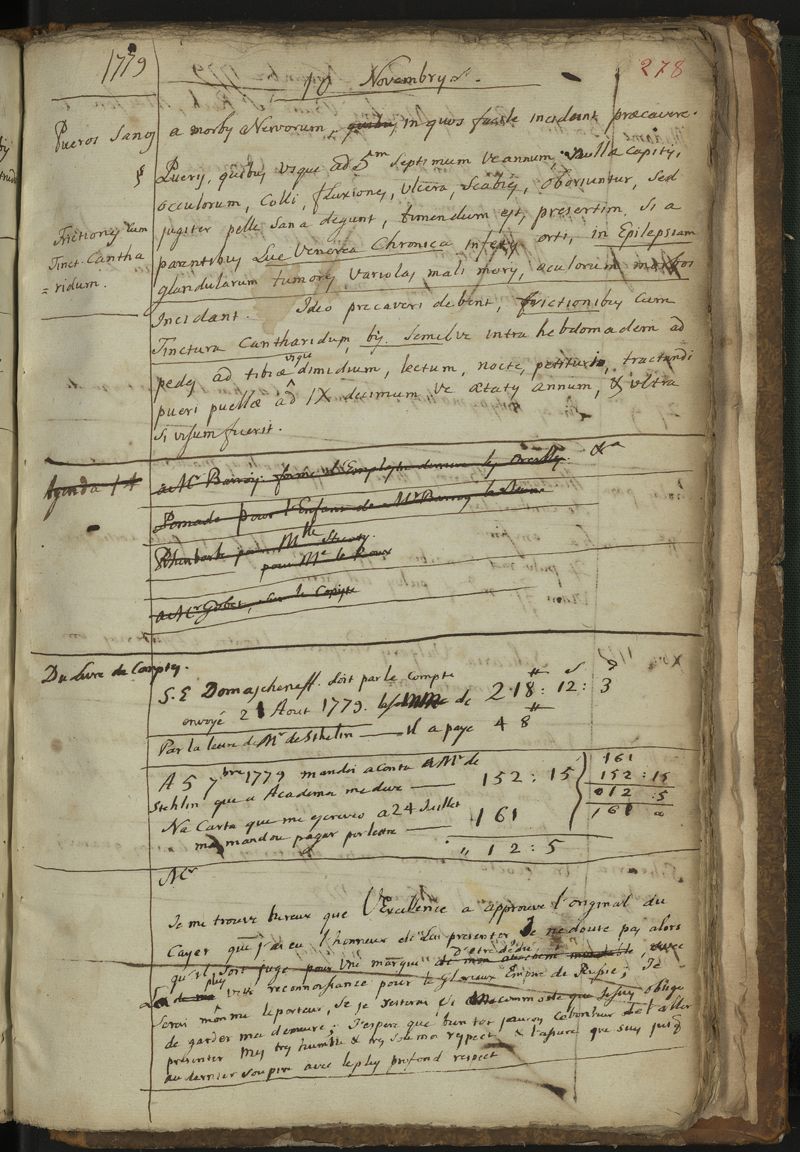 1779
10 Novembrys.
278
Pueros Sanos
a morbis Nervorum, in quos facile incidant præcavere.
§ Pueris, quibus usque ad 5m Septimum ve annum, nulla capitis,
occulorum, Colli, fluxiones, ulcera, Scabies, oboriuntur, sed
Frictiones cum
jugiter pelle Sana degunt, timendum est, presertim, si a
Tinct. Cantha
parentibus Lue Venerea Chronica infectis orti, in Epilepsiam
=ridum.
glandularum tumores, variolas mali moris, oculorum morbos
Incidant. Ideo precaveri debent, frictionibus cum
Tinctura Cantharidum, bis. Semelve intra hebdomadem ad
pedes ad tibiæ usque dimidium, lectum, nocte, petituris, tractandi
pueri puellæ ad IX decimum ve ætatis annum, & ultra
Si visum fuerit.
Agenda 14
a Mr Barros. &a
Pomade pour l'Enfant de Mr Barros le Jeune
Rhubarbe pour Mlle
pour Me le Roux
a Mr Gobet, sur le Copiste
Du livre de Comptes.
S. E Domascheneff. doit par le compte
envoyé 21 Aout 1779. de 218 : 12 : 3
Par la lettre de Mr de Stehlin — il a payé 48
A 5 7bre 1779 mandei a conta a Mr de
Stehlin que a Academia me deve — 152 : 15
Na Carta que me escreveo a 24 Juillet
me mandou pagar por — 161
" 12 : 5
161
152 : 15
012 : 5
161 "
Mr
Je me trouve hureux que V. Excellence a approuvé l'original du
Cayer que j'ai eu l'honneur de Lui presenter Je ne doute pas alors
qu'il soit jugé pour une marque d'etre dédié, avec
La plus vive reconnoissance pour le Glorieux Empire de Russie; Je
Serai même le porteur, Si je n'estois si incommodé que Je suis obligé
de garder ma demeure; J'espere que bien tot j'auray le bonheur de l'aller
presenter Mes tres humble & tres soumis respect & l'assurer que suis jusq
au dernier soupire avec le plus profond respect